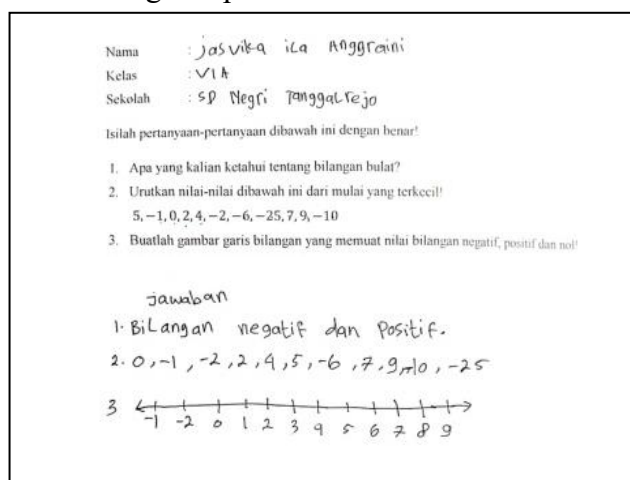 Nama : Jasvika ica Anggraini
Kelas : VI A
Sekolah : SD Negri Tanggalrejo
Isilah pertanyaan-pertanyaan dibawah ini dengan benar!
1. Apa yang kalian ketahui tentang bilangan bulat?
2. Urutkan nilai-nilai dibawah ini dari mulai yang terkecil!
5, −1, 0, 2, 4, −2, −6, −25, 7, 9, −10
3. Buatlah gambar garis bilangan yang memuat nilai bilangan negatif, positif dan nol!
jawaban
1. Bilangan negatif dan Positif.
2. 0, -1, -2, 2, 4, 5, -6, 7, 9, -10, -25
3 -1 -2 0 1 2 3 4 5 6 7 8 9